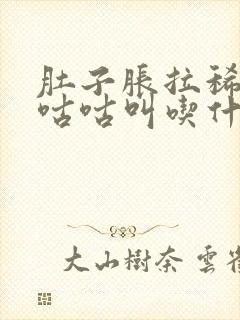 肚子脹拉稀
咕咕叫喫什
大山樹奈 雲雀